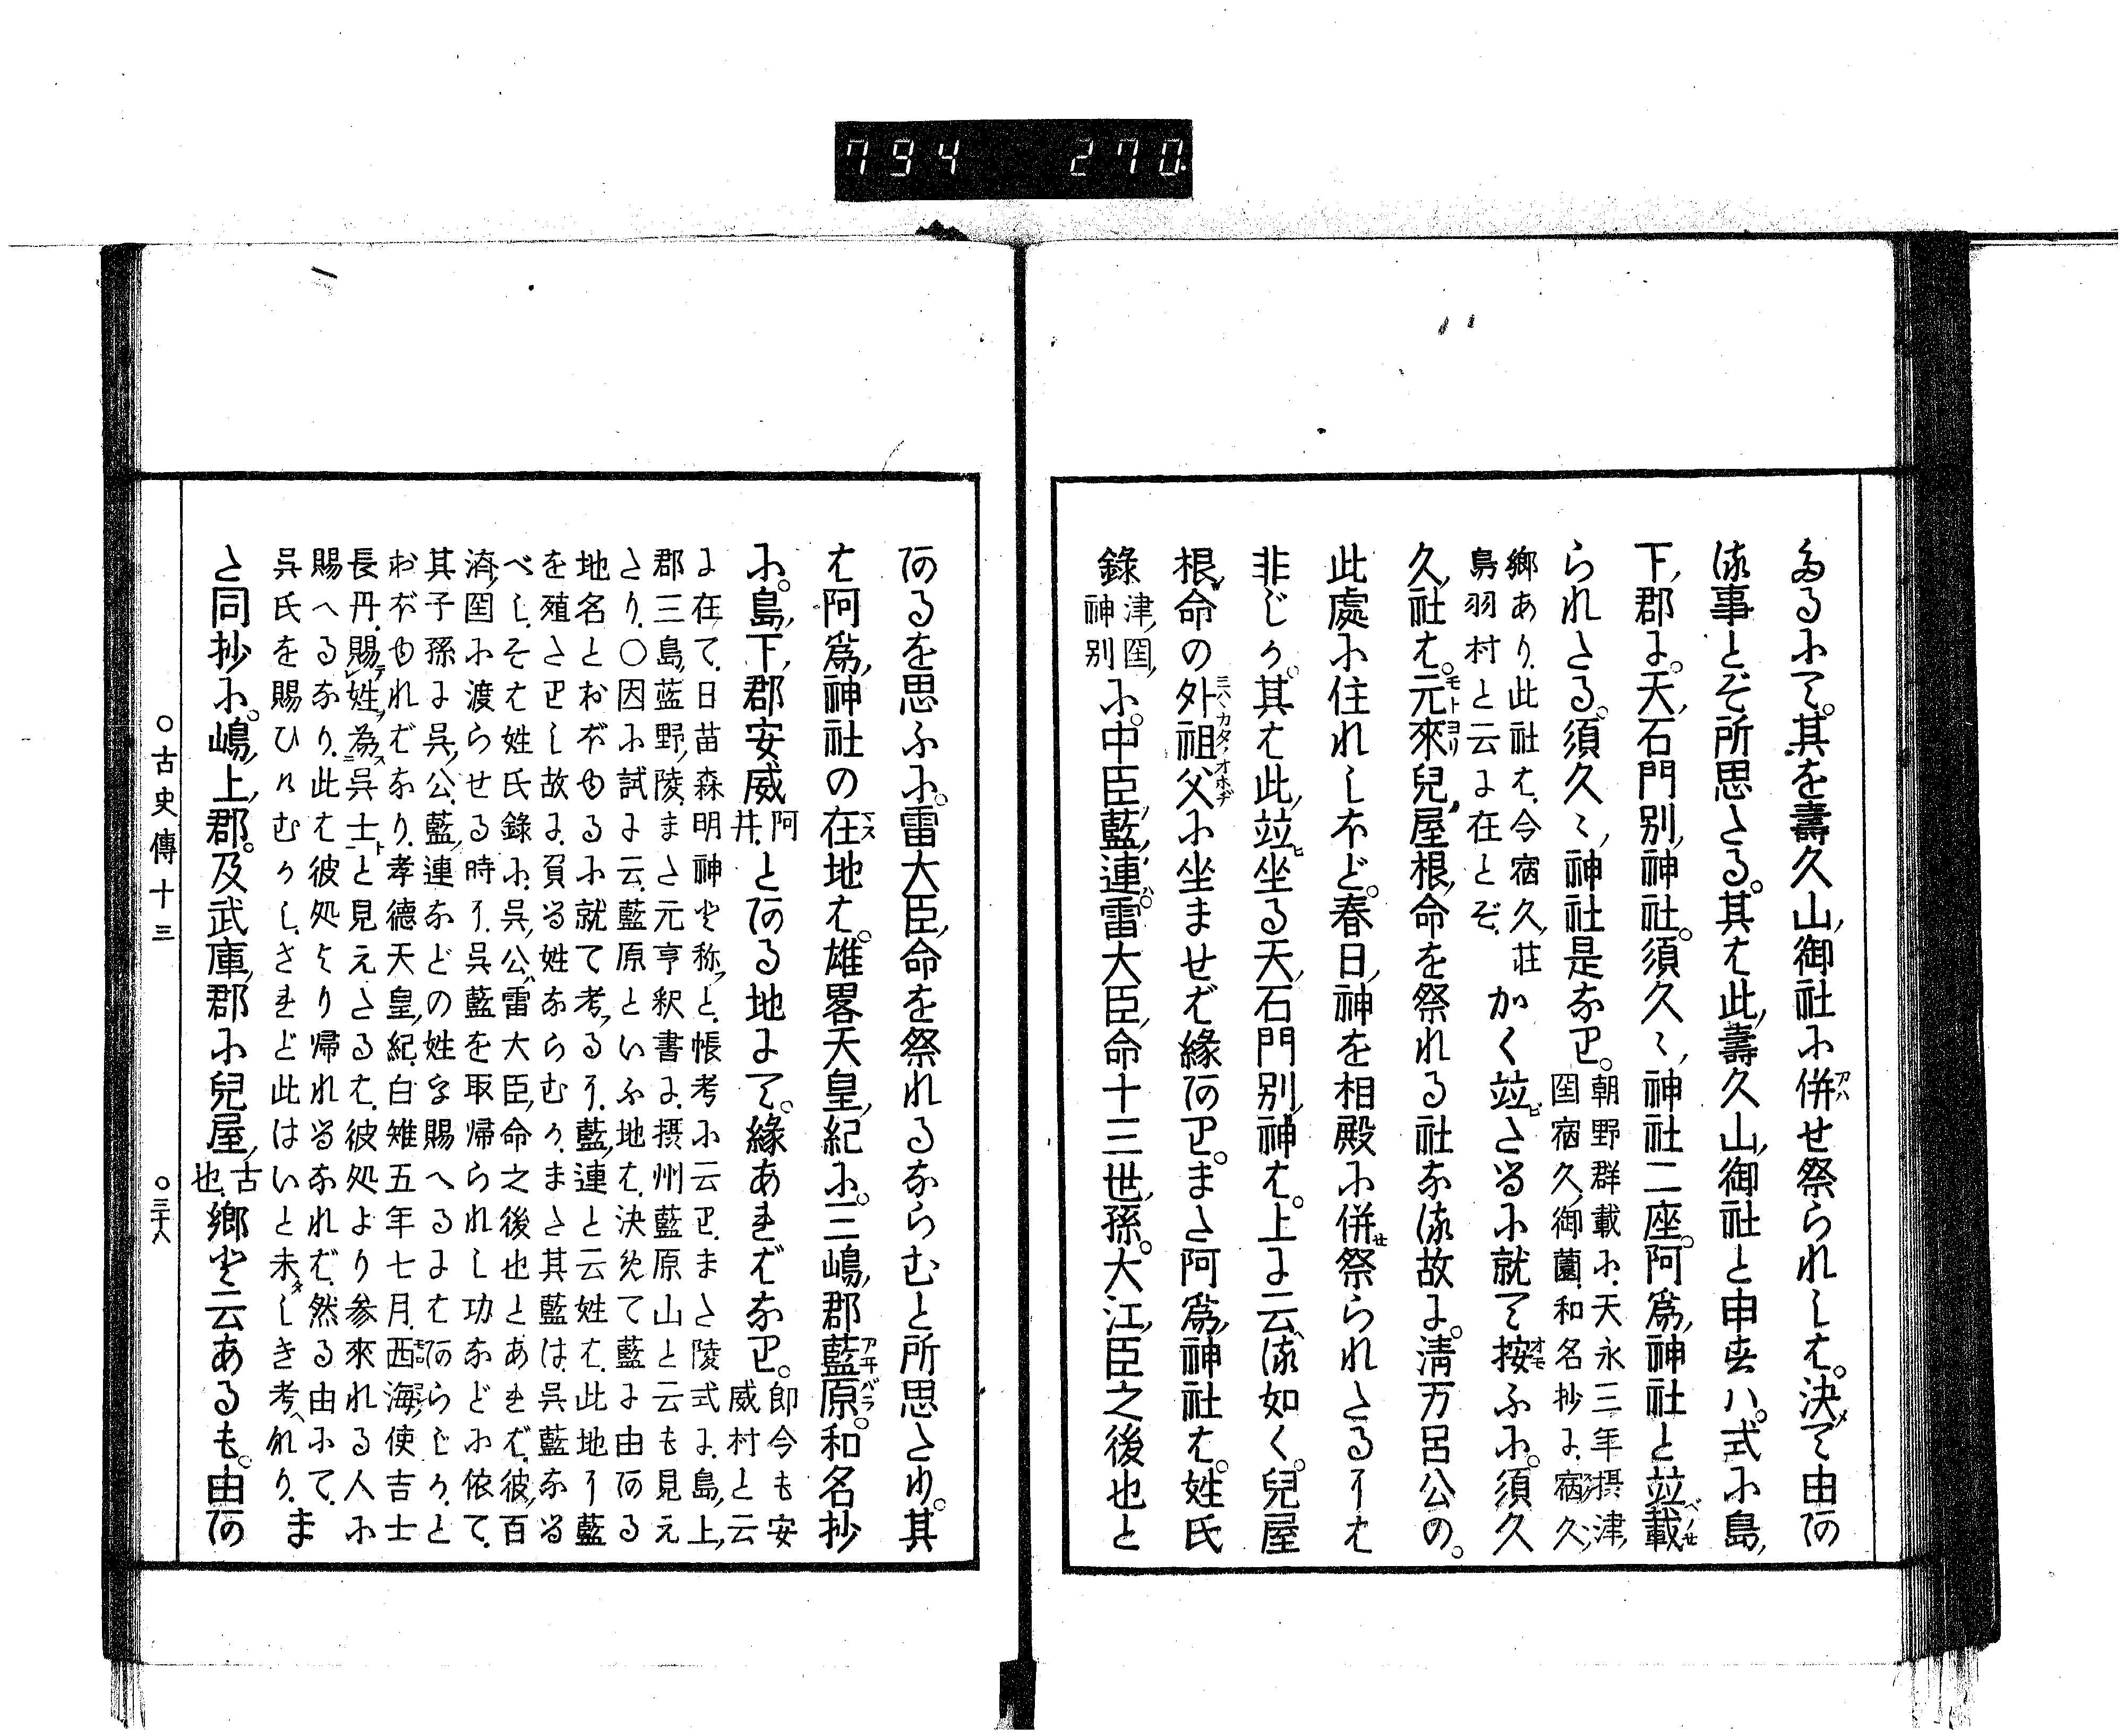 794 270
たるにて。其を壽久山御社に併せ祭られしは。決めて由ある
る事とぞ所思たる。其は此壽久山御社と申すハ。式に島
下郡に。天石門別神社。須久々神社二座。阿爲神社と竝載
られたる。須久々神社是なり。
朝野群載に。天永三年摂津
国宿久御薗。和名抄に。宿久
郷あり。此社は。今宿久荘
鳥羽村と云に在とぞ。
かく竝びたるに就て按ふに。須久
久社は。元來兒屋根命を祭れる社なる故に。清万呂公の。
此處に住れしほど。春日神を相殿に併せ祭られたるうは
非じか。其は此竝び坐る天石門別神は。上に云る如く。兒屋
根命の外祖父に坐ませば緣あり。また阿爲神社は。姓氏
錄
津国
神別
に。中臣藍連ハ。雷大臣命十三世孫。大江臣之後也と
あるを思ふに。雷大臣命を祭れるならむと所思たり。其
は阿爲神社の在地は。雄畧天皇紀に。三嶋郡藍原。和名抄
に。島下郡安威
阿
井
とある地にて。緣あればなり。
即今も安
威村と云
に在て。日苗森明神と称と。帳考に云り。また陵式に。島上
郡三島藍野陵。また元亨釈書に。摂州藍原山と云も見え
たり。○因に試に云。藍原といふ地は。決めて藍に由ある
地名とおぼゆるに就て考るに。藍連と云姓は。此地に藍
を殖たりし故に。負る姓ならむか。また其藍は。呉藍なる
べし。そは姓氏錄に。呉公。雷大臣命之後也とあれば。彼百
濟国に渡らせる時に。呉藍を取帰られし功などに依て。
其子孫に呉公。藍連などの姓を賜へるにはあらじか。と
おぼゆればなり。孝德天皇紀。白雉五年七月。西海使吉士
長丹。賜姓為呉士と見えたるは。彼処より参來れる人に
賜へるなり。此は彼処より帰れるなれば。然る由にて。
呉氏を賜ひけむかし。されど此はいと未しき考へなり。
ま
た同抄に。嶋上郡。及武庫郡に兒屋
古
也
郷と云あるも。由あ
○古史傳十三 ○三十八